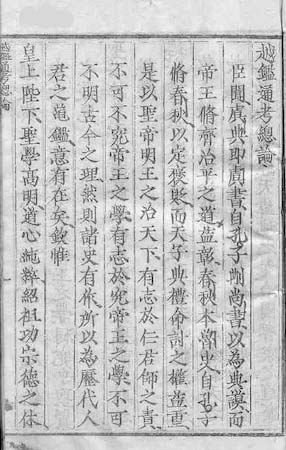 越鑑通考總論
臣聞虞典即虞書自孔子刪尚書以為典謨而
帝王脩齊治平之道益彰春秋本魯史自孔子
脩春秋以定褒貶而天子典禮命討之權益重
是以聖帝明王之治天下有志於仁君師之責
不可不究帝王之學有志於究帝王之學不可
不明古今之理然則諸史有作所以為歷代人
君之龜鑑意有在矣欽惟
皇上陛下聖學高明道心純粹紹祖功宗德之休
越鑑通考總論